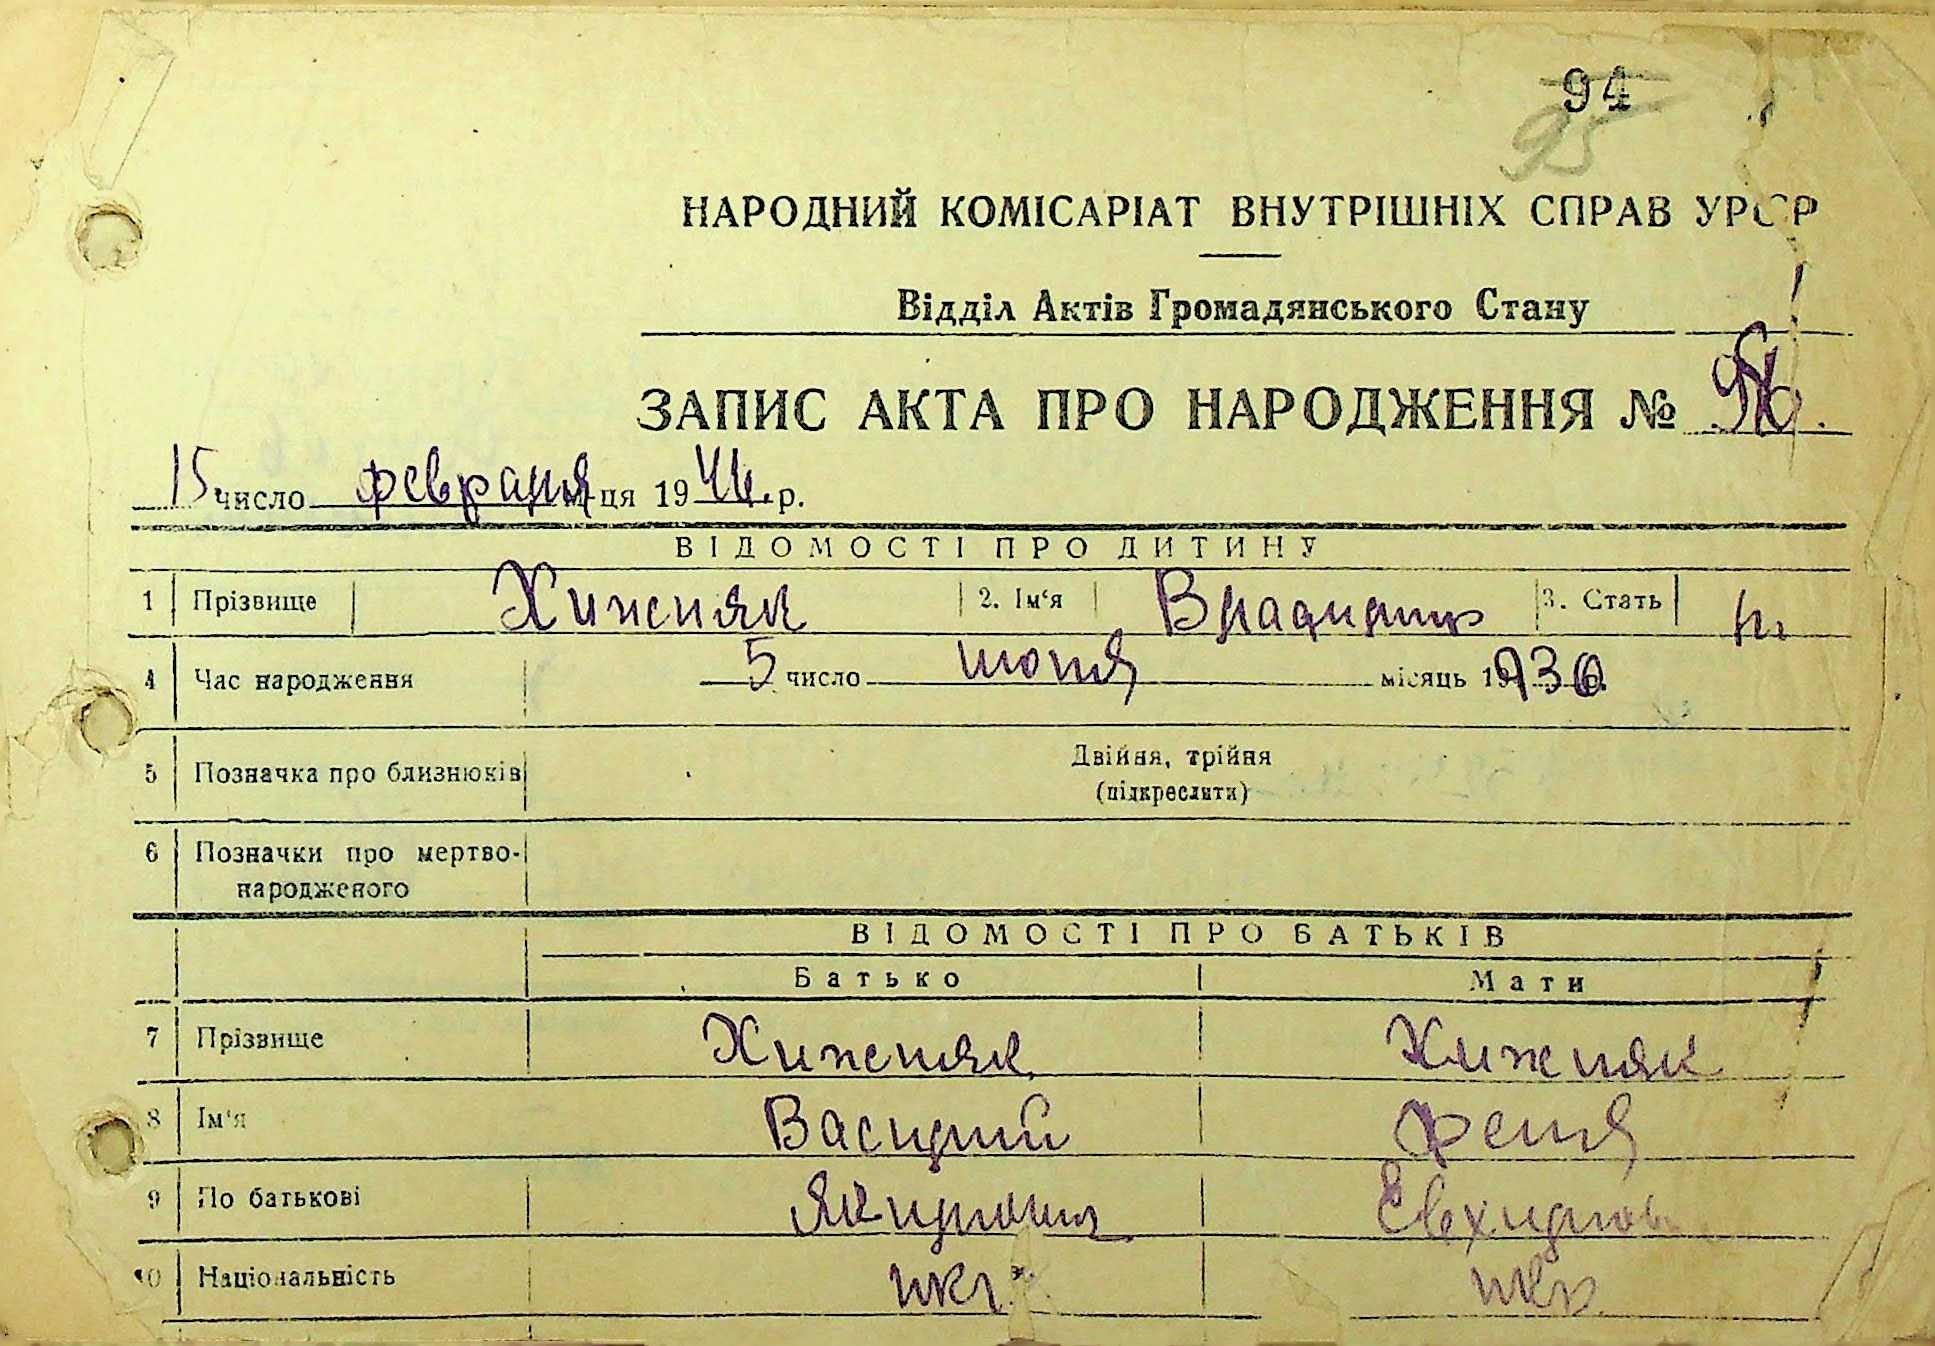 94
95
НАРОДНИЙ КОМІСАРІАТ ВНУТРІШНІХ СПРАВ УРСР
Відділ Актів Громадянського Стану
ЗАПИС АКТА ПРО НАРОДЖЕННЯ №
15 число февраля м-ця 1944 р.
ВІДОМОСТІ ПРО ДИТИНУ
1 Прізвище Хижняк 2. Ім‘я Владимир 3. Стать м
4 Час народження 5 число июля місяць 1936
5 Позначка про близнюків Двійня, трійня
(підкреслити)
6 Позначки про мертво-
народженого
ВІДОМОСТІ ПРО БАТЬКІВ
Батько Мати
7 Прізвище Хижняк Хижняк
8 Ім‘я Василий Феня
9 По батькові Якимович Евхимов
10 Національність укр укр